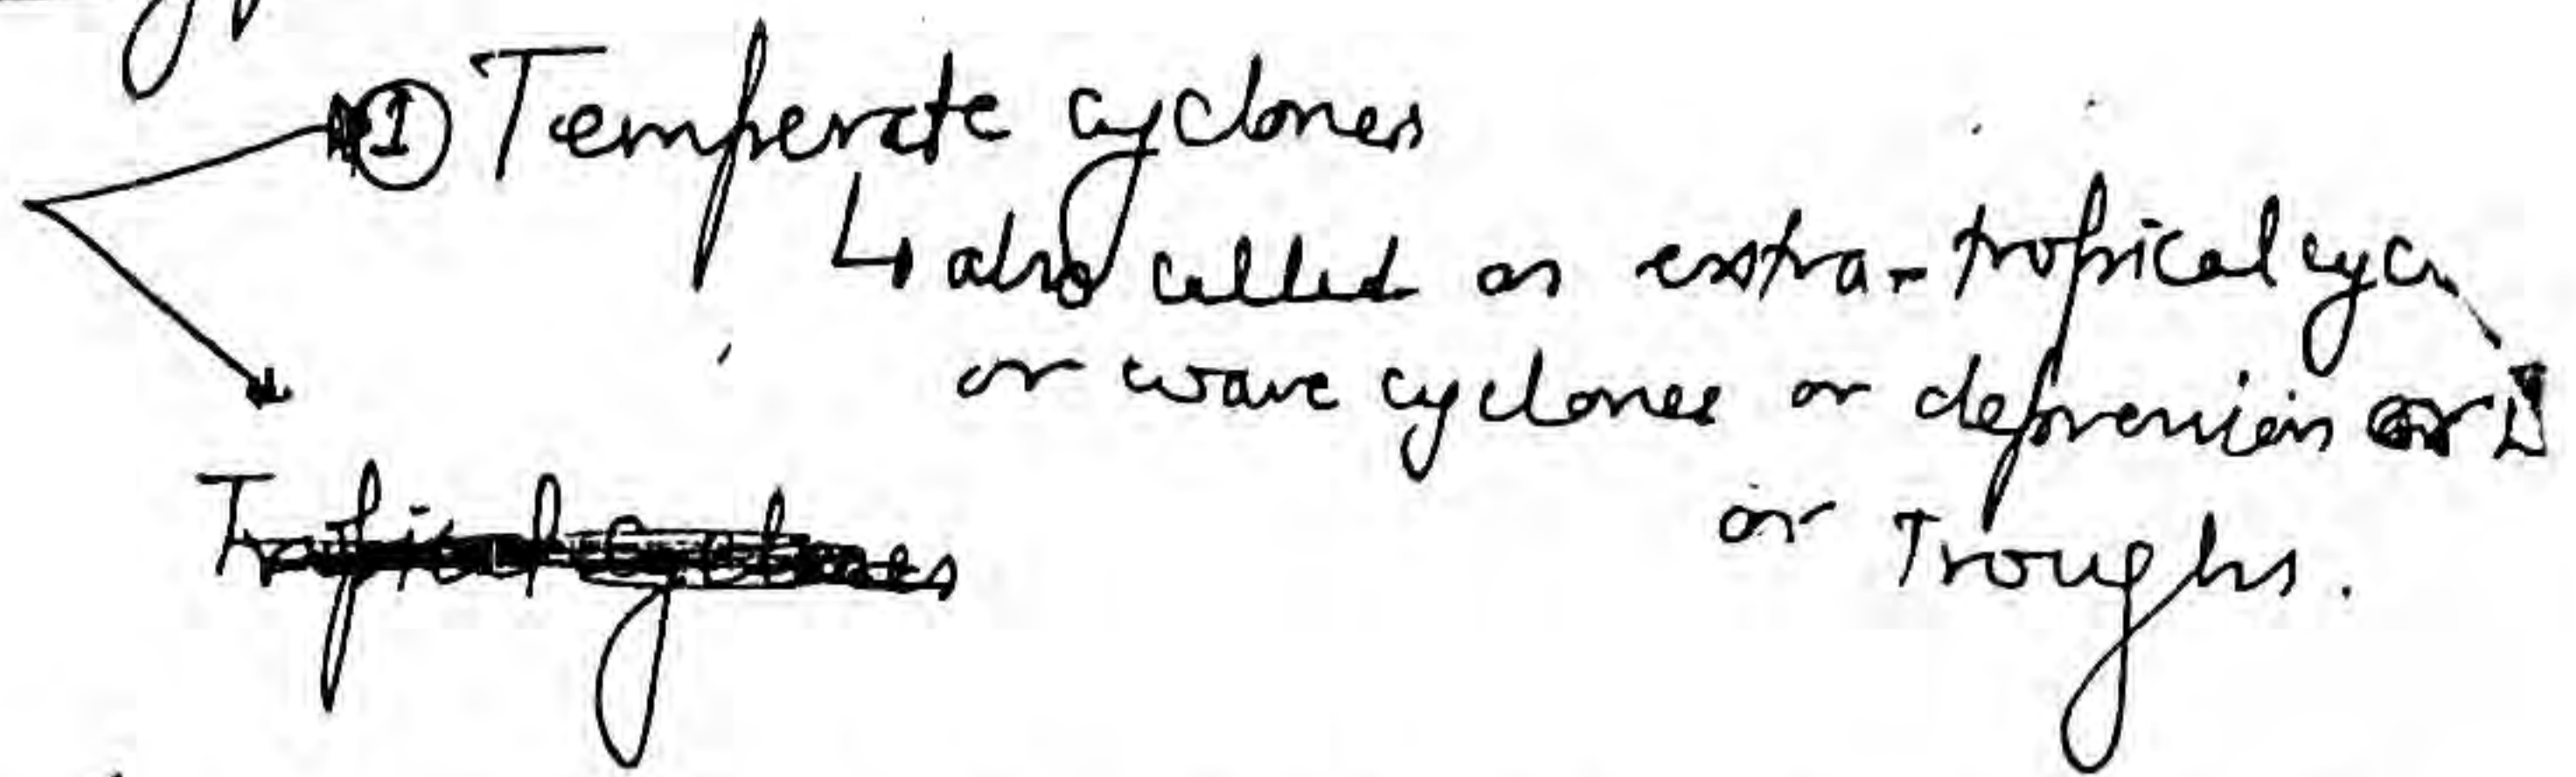 ① Temperate cyclones
↳ also called as extra-tropical cyc
or wave cyclones or depression or
or Troughs.
Tropical Cyclones